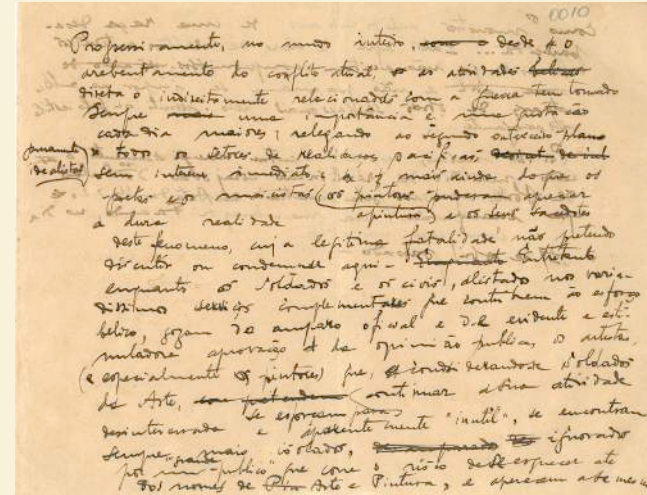 0010
Progressivamente, no mundo inteiro, desde o
arebentamento do conflito atual, as atividades
direta o indireitamente relacionados com a guerra tem tomado
sempre uma importância e uma
cada dia maiores; relegando ao segundo plano
todos os setores de pacificas
puramente idealistas
sem interesse immediato; e mais ainda do que os
poetas e os musicistas (os pintores puderam
a dura realidade a pintura) e os seus
deste fenomeno, cuja legitima fatalidade não pretendo
discutir ou condemnar aqui - Entretanto
enquanto os soldados e os civis, alistado nos varia-
dissimos serviços complementares que contribuem ao esforço
belico, gozam do amparo oficial e da evidente e esti-
muladora aprovação da opinião publica, os artistas,
(e especialmente os pintores) que, considerandose soldados
da Arte, continuar a sua atividade
se esforçam para
desinteressada e aparentemente "inutil", se encontram
sempre mais isolados, ignorado
por um "grande publico" que corre o risco de esquecer até
dos nomes de Arte e Pintura, e aparecem até mesmo